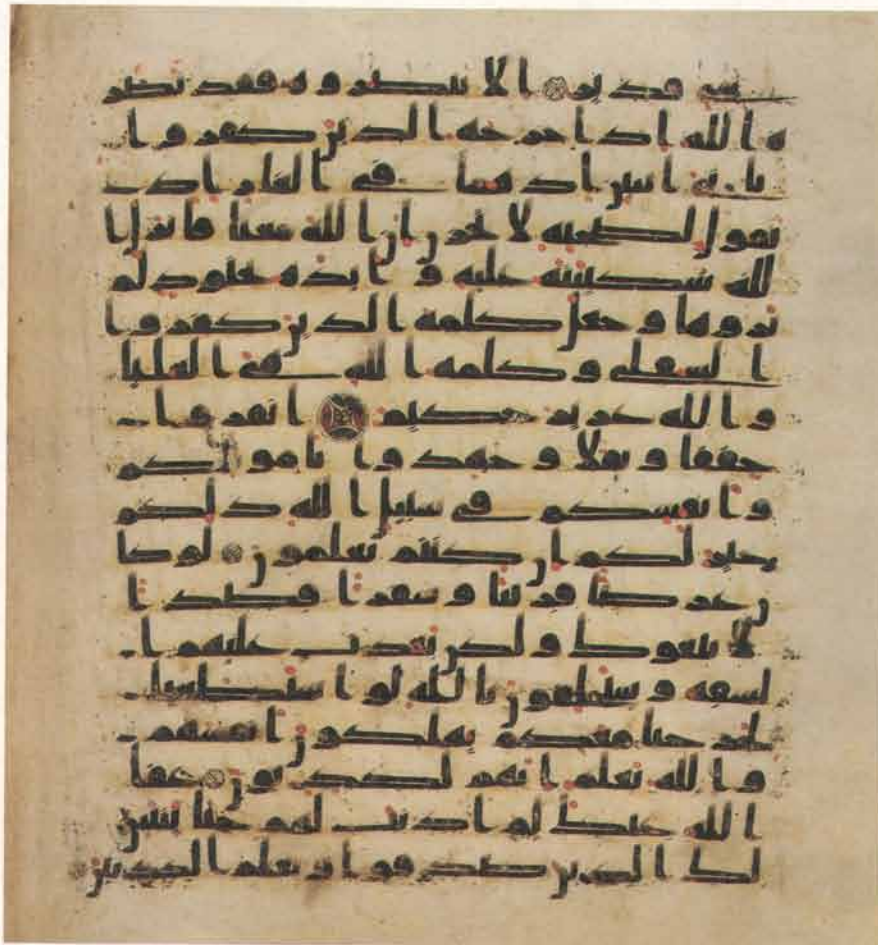 شي قدير الا تنصروه فقد نصر
ه الله اذ اخرجه الذين كفروا
ثاني اثنين اذ هما في الغار اذ
يقول لصحبه لا تحزن ان الله معنا فانزل ا
لله سكينته عليه و ايده بجنود لم
تروها و جعل كلمة الذين كفروا
السفلى و كلمة الله هي العليا
و الله عزيز حكيم انفروا
خففا و ثقلا و جهدوا باموالكم
و انفسكم في سبيل الله ذلكم
خير لكم ان كنتم تعلمون لو كا
ن عرضا قريبا و سفرا قصدا
لا تبعوك و لكن بعدت عليهم ا
لشقة و سيحلفون بالله لو استطعنا
لخرجنا معكم يهلكون انفسهم
و الله يعلم انهم لكذبون عفا
الله عنك لم اذنت لهم حتى يتبين
لك الذين صدقوا و تعلم الكذبين